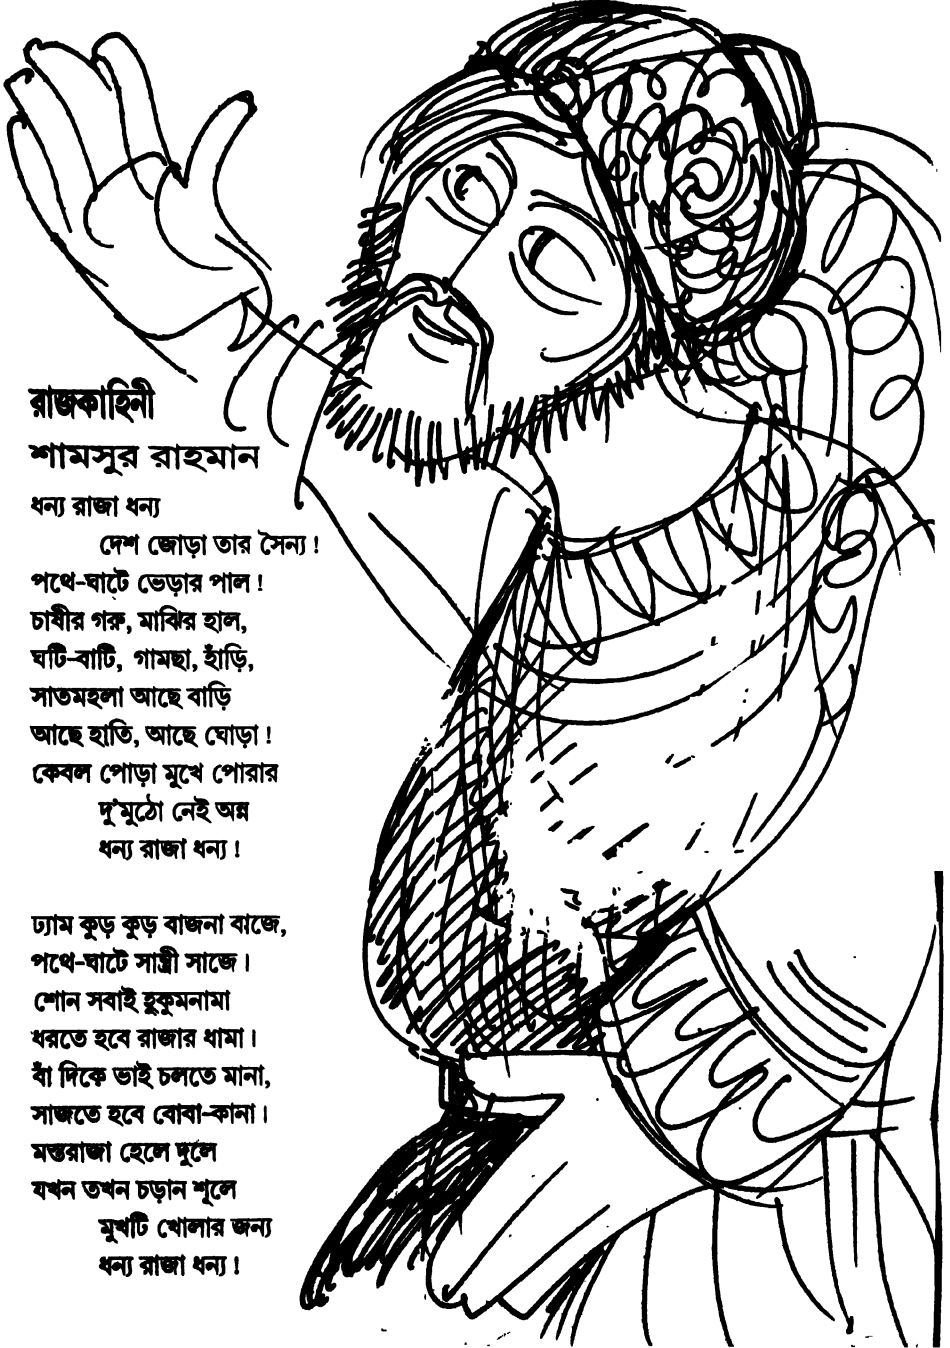 রাজকাহিনী
শামসুর রাহমান
ধন্য রাজা ধন্য
দেশ জোড়া তার সৈন্য !
পথে-ঘাটে ভেড়ার পাল !
চাষীর গরু, মাঝির হাল,
ঘটি-বাটি, গামছা, হাঁড়ি,
সাতমহলা আছে বাড়ি
আছে হাতি, আছে ঘোড়া !
কেবল পোড়া মুখে পোরার
দু'মুঠো নেই অন্ন
ধন্য রাজা ধন্য !
ঢ্যাম কুড় কুড় বাজনা বাজে,
পথে-ঘাটে সান্ত্রী সাজে।
শোন সবাই হুকুমনামা
ধরতে হবে রাজার ধামা।
বাঁ দিকে ভাই চলতে মানা,
সাজতে হবে বোবা-কানা।
মস্তরাজা হেলে দুলে
যখন তখন চড়ান শূলে
মুখটি খোলার জন্য
ধন্য রাজা ধন্য !